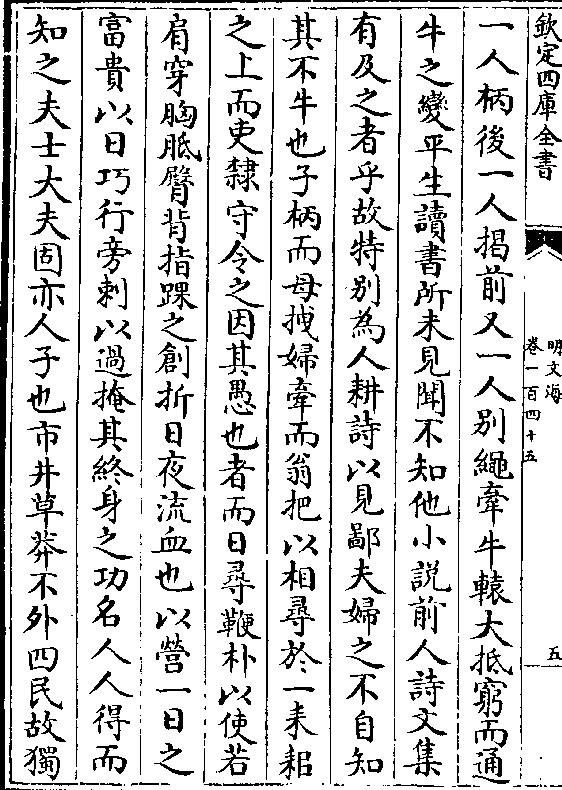 欽定四庫全書
明文海
卷一百四十五
五
一人柄後一人揭前又一人別繩牽牛轅大抵窮而通
牛之變平生讀書所未見聞不知他小説前人詩文集
有及之者乎故特别為人耕詩以見鄙夫婦之不自知
其不牛也子柄而母拽婦牽而翁把以相尋於一耒耜
之上而吏隸守令之因其愚也者而日尋鞭朴以使若
肩穿胸胝臂背指踝之創折日夜流血也以營一日之
富貴以日巧行旁剌以過掩其終身之功名人人得而
知之夫士大夫固亦人子也市井草莽不外四民故獨